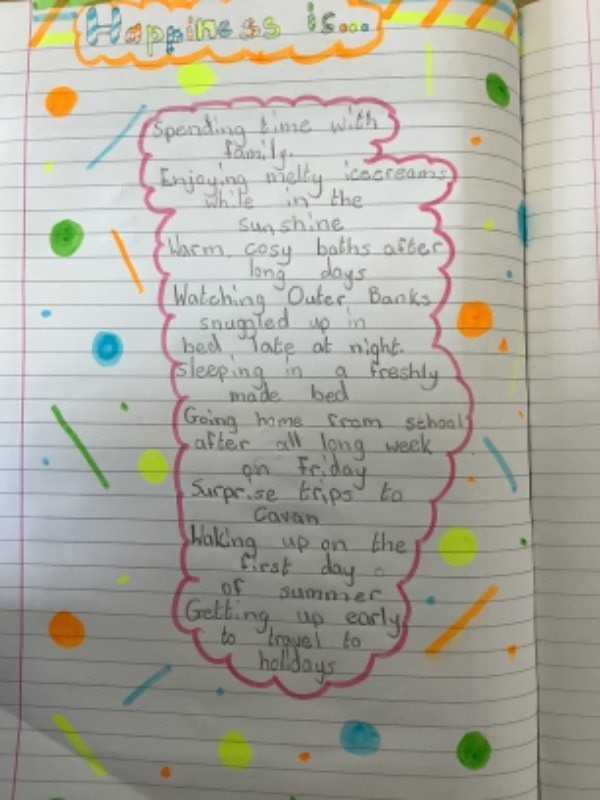 Happiness is...
Spending time with
family.
Enjoying melty icecreams
while in the
sunshine
Warm, cosy baths after
long days
Watching Outer Banks
snuggled up in
bed late at night.
Sleeping in a freshly
made bed
Going home from school
after all long week
on Friday
Surprise trips to
Cavan
Waking up on the
first day
of summer
Getting up early
to travel to
holidays